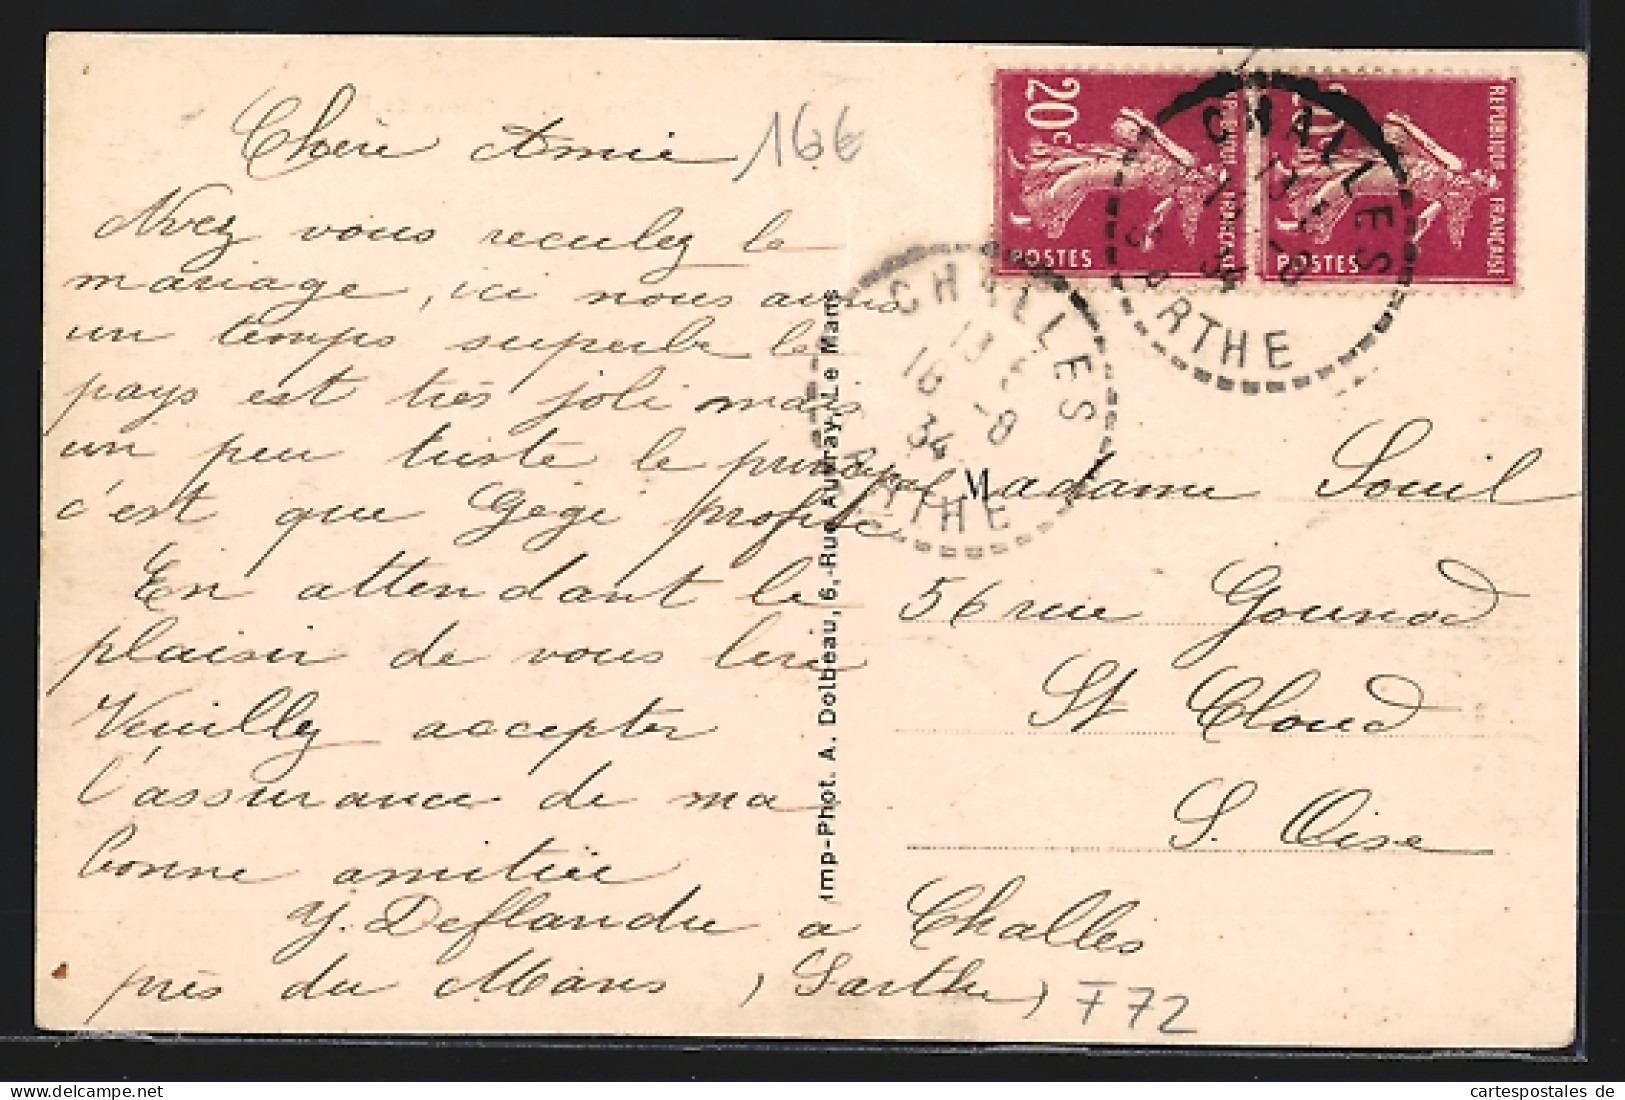 Chère Amie
166
Avez vous reculez le
mariage, ici nous avons
un temps superbe le
pays est très joli mais
un peu triste le principal
c'est que Gégé profite
En attendant le
plaisir de vous lire
Veuillez accepter
l'assurance de ma
bonne amitiée
Y. Deflandre a Challes
près du Mans, (Sarthe)
T 72
Imp-Phot. A. Dolbeau, 6, Rue Auvray, Le Mans
20c
POSTES
REPUBLIQUE FRANÇAISE
20c
POSTES
REPUBLIQUE FRANÇAISE
CHALLES
SARTHE
34
CHALLES
13
16 -8
34
SARTHE
Madame Souil
56 rue Gounod
St Cloud
S. Oise
cartespostales de